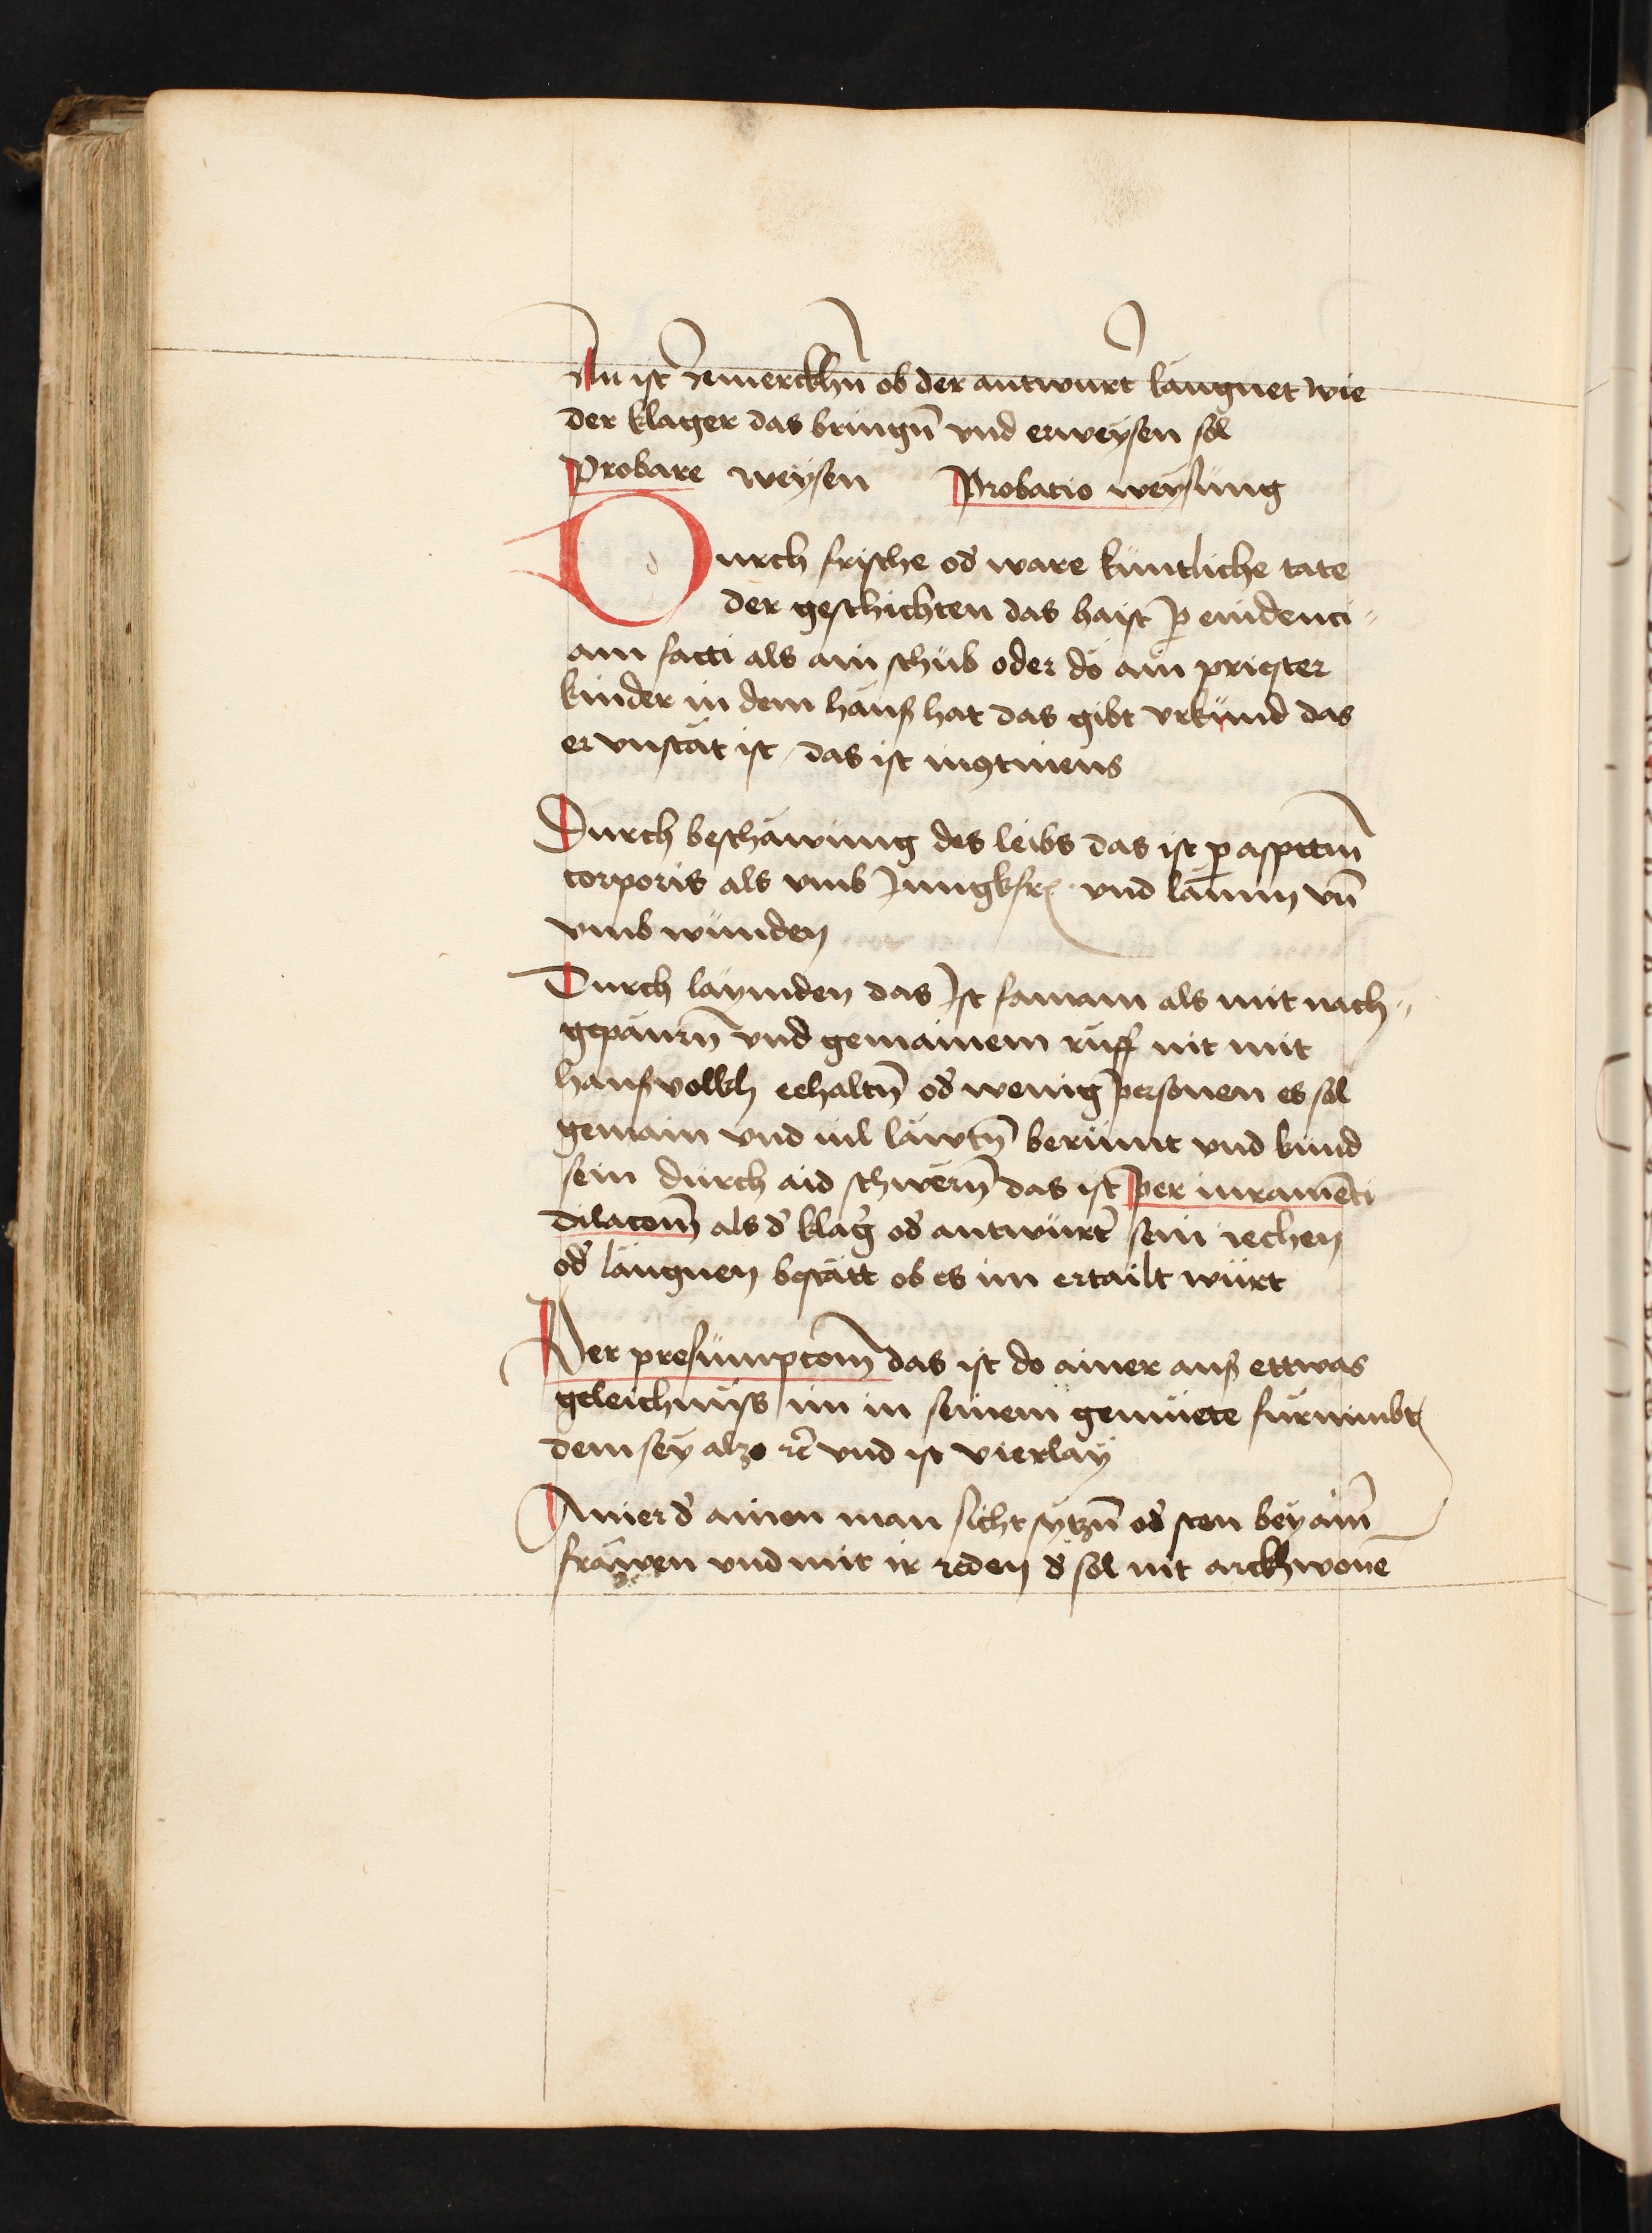 Nu ist zemerckhn̄ ob der antwurt̄ laugnet wie
der klager das bringn̄ vnd erweysen sol
Probare weysen Probatio weysung
Durch frische od̄ ware kuntliche tate
der geschichten das haist p̄ euidenci-
am facti als ain schub oder do ain priester
kinder in dem hauß hat das gibt vrkund das
er vnstät ist / das ist inꝯtinens
Durch beschawung des leibs das ist ꝑ aspectum̄
corporis als vmb Jungkfr̄ und lämm vn̄
vmb wunden
Durch läymden das Ist famam als mit nach-
gepaurn̄ vnd gemainem ruff nit mit
haußvolkh eehaltn̄ od̄ wenig personen es sol
gemain vnd uil läwtn̄ berümt vnd kund
sein durch aid schwern̄ das ist per iuramēti
dilacom̄ als d̄ klaḡ od̄ antwürt̄ sein iechen
od̄ laugnen bestätt ob es im ertailt würt
Per presumpcom̄ das ist do ainer auß ettwas
geleichnuss im in seinem gemüete furnimbt
dem sey also ꝛc̄ vnd ist vierlay
Ainer d̄ ainen man sicht sytzn̄ od̄ sten bey ain̄
frawen vnd mit ir reden d̄ sol nit arckhwonē